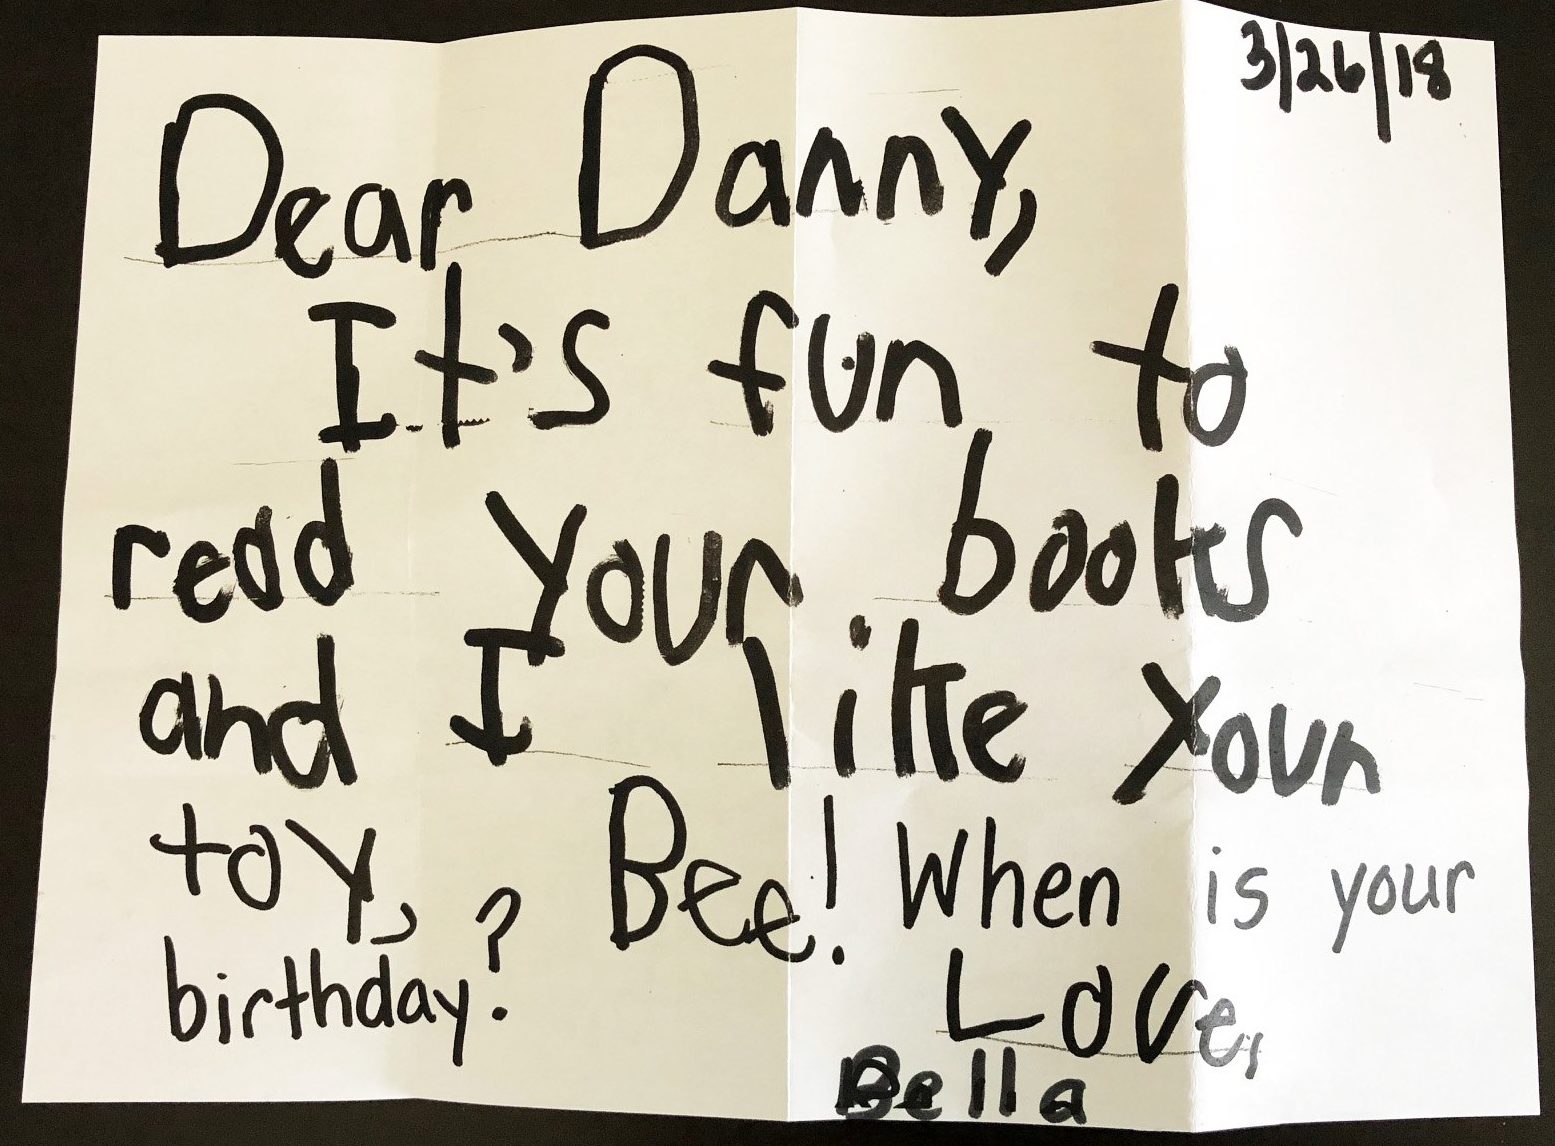 3/26/18
Dear Danny,
It's fun to
read your books
and I like your
toy, Bee! When is your
birthday?
Love,
Bella